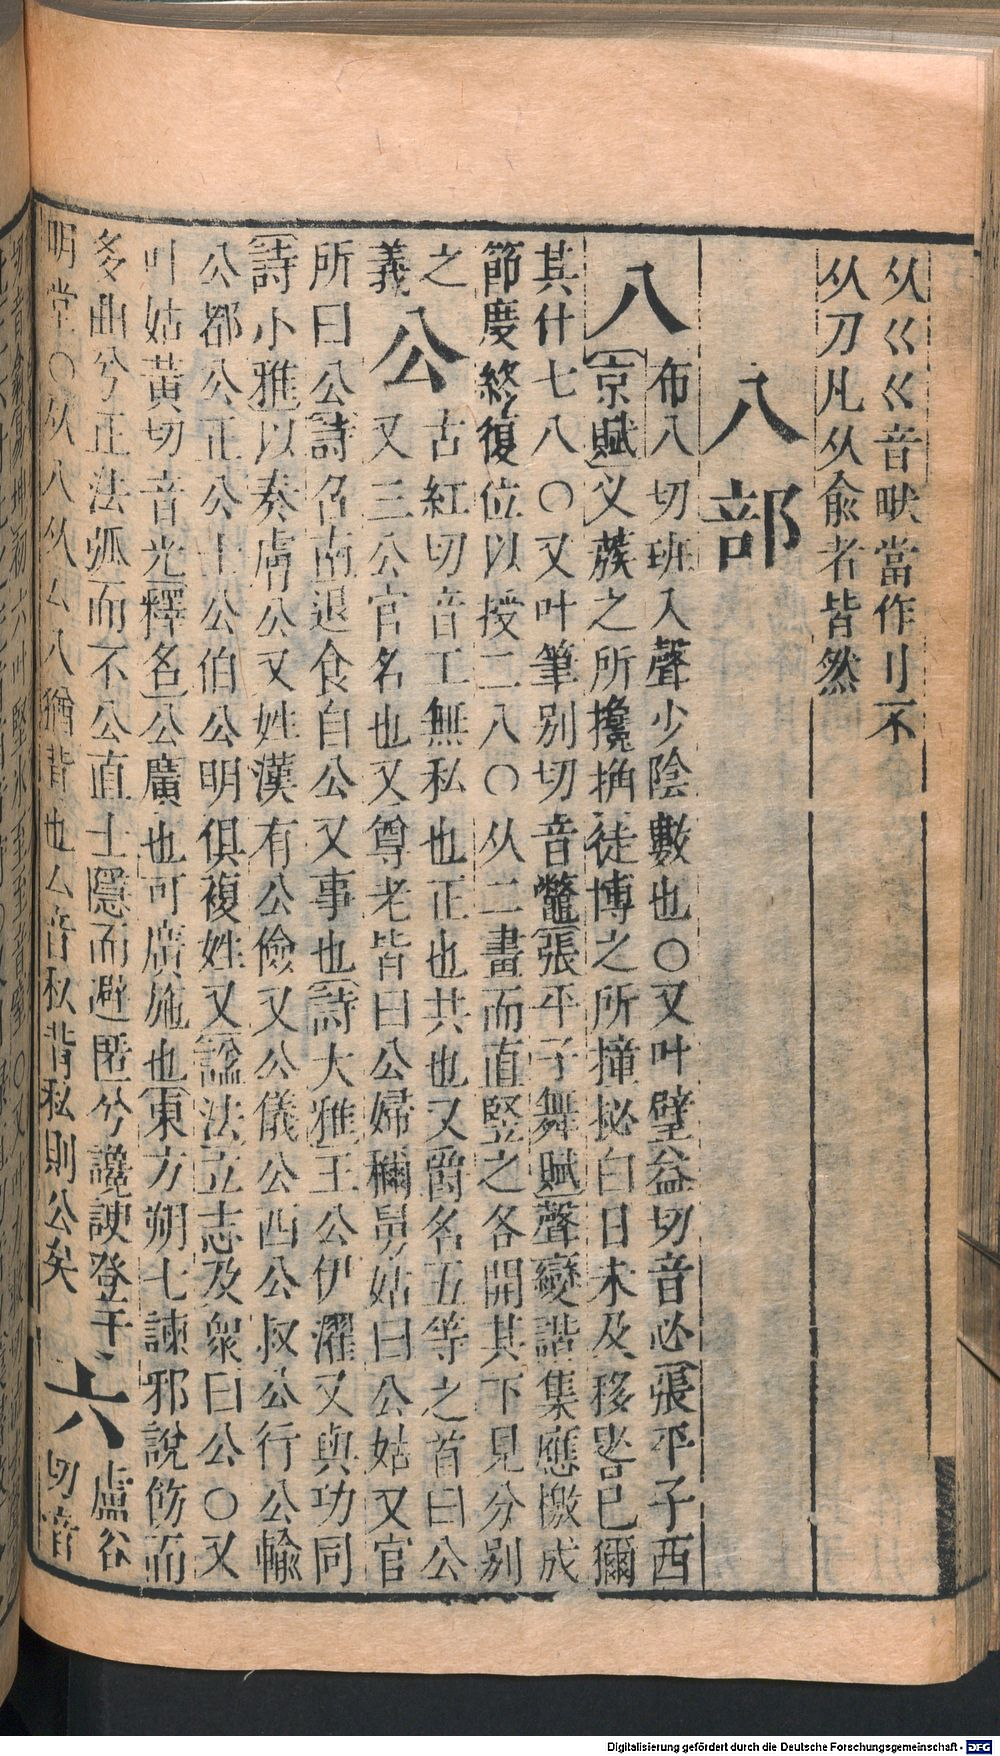 从巜巜音畎當作刂不
从刀凡从兪者皆然
八部
八
布八切班入聲少陰數也○又叶璧益切音必張平子西
京賦叉蔟之所攙捔徒博之所撞㧙白日未及移晷已獮
其什七八○又叶筆別切音鼈張平子舞賦聲變諧集應檄成
節度終復位以授二八○从二畫而直竪之各開其下見分別
之
義
公
古紅切音工無私也正也共也又爵名五等之首曰公
又三公官名也又尊老皆曰公婦稱舅姑曰公姑又官
所曰公詩召南退食自公又事也詩大雅王公伊濯又與功同
詩小雅以奏膚公又姓漢有公儉又公儀公西公叔公行公輸
公都公正公士公伯公明俱複姓又諡法立志及衆曰公○又
叶姑黃切音光釋名公廣也可廣施也東方朔七諫邪說飾而
多曲兮正法弧而不公直士隱而避匿兮讒諛登乎
明堂○从八从厶八猶背也厶音私背私則公矣
六
盧谷
切音
Digitalisierung gefördert durch die Deutsche Forschungsgemeinschaft - DFG